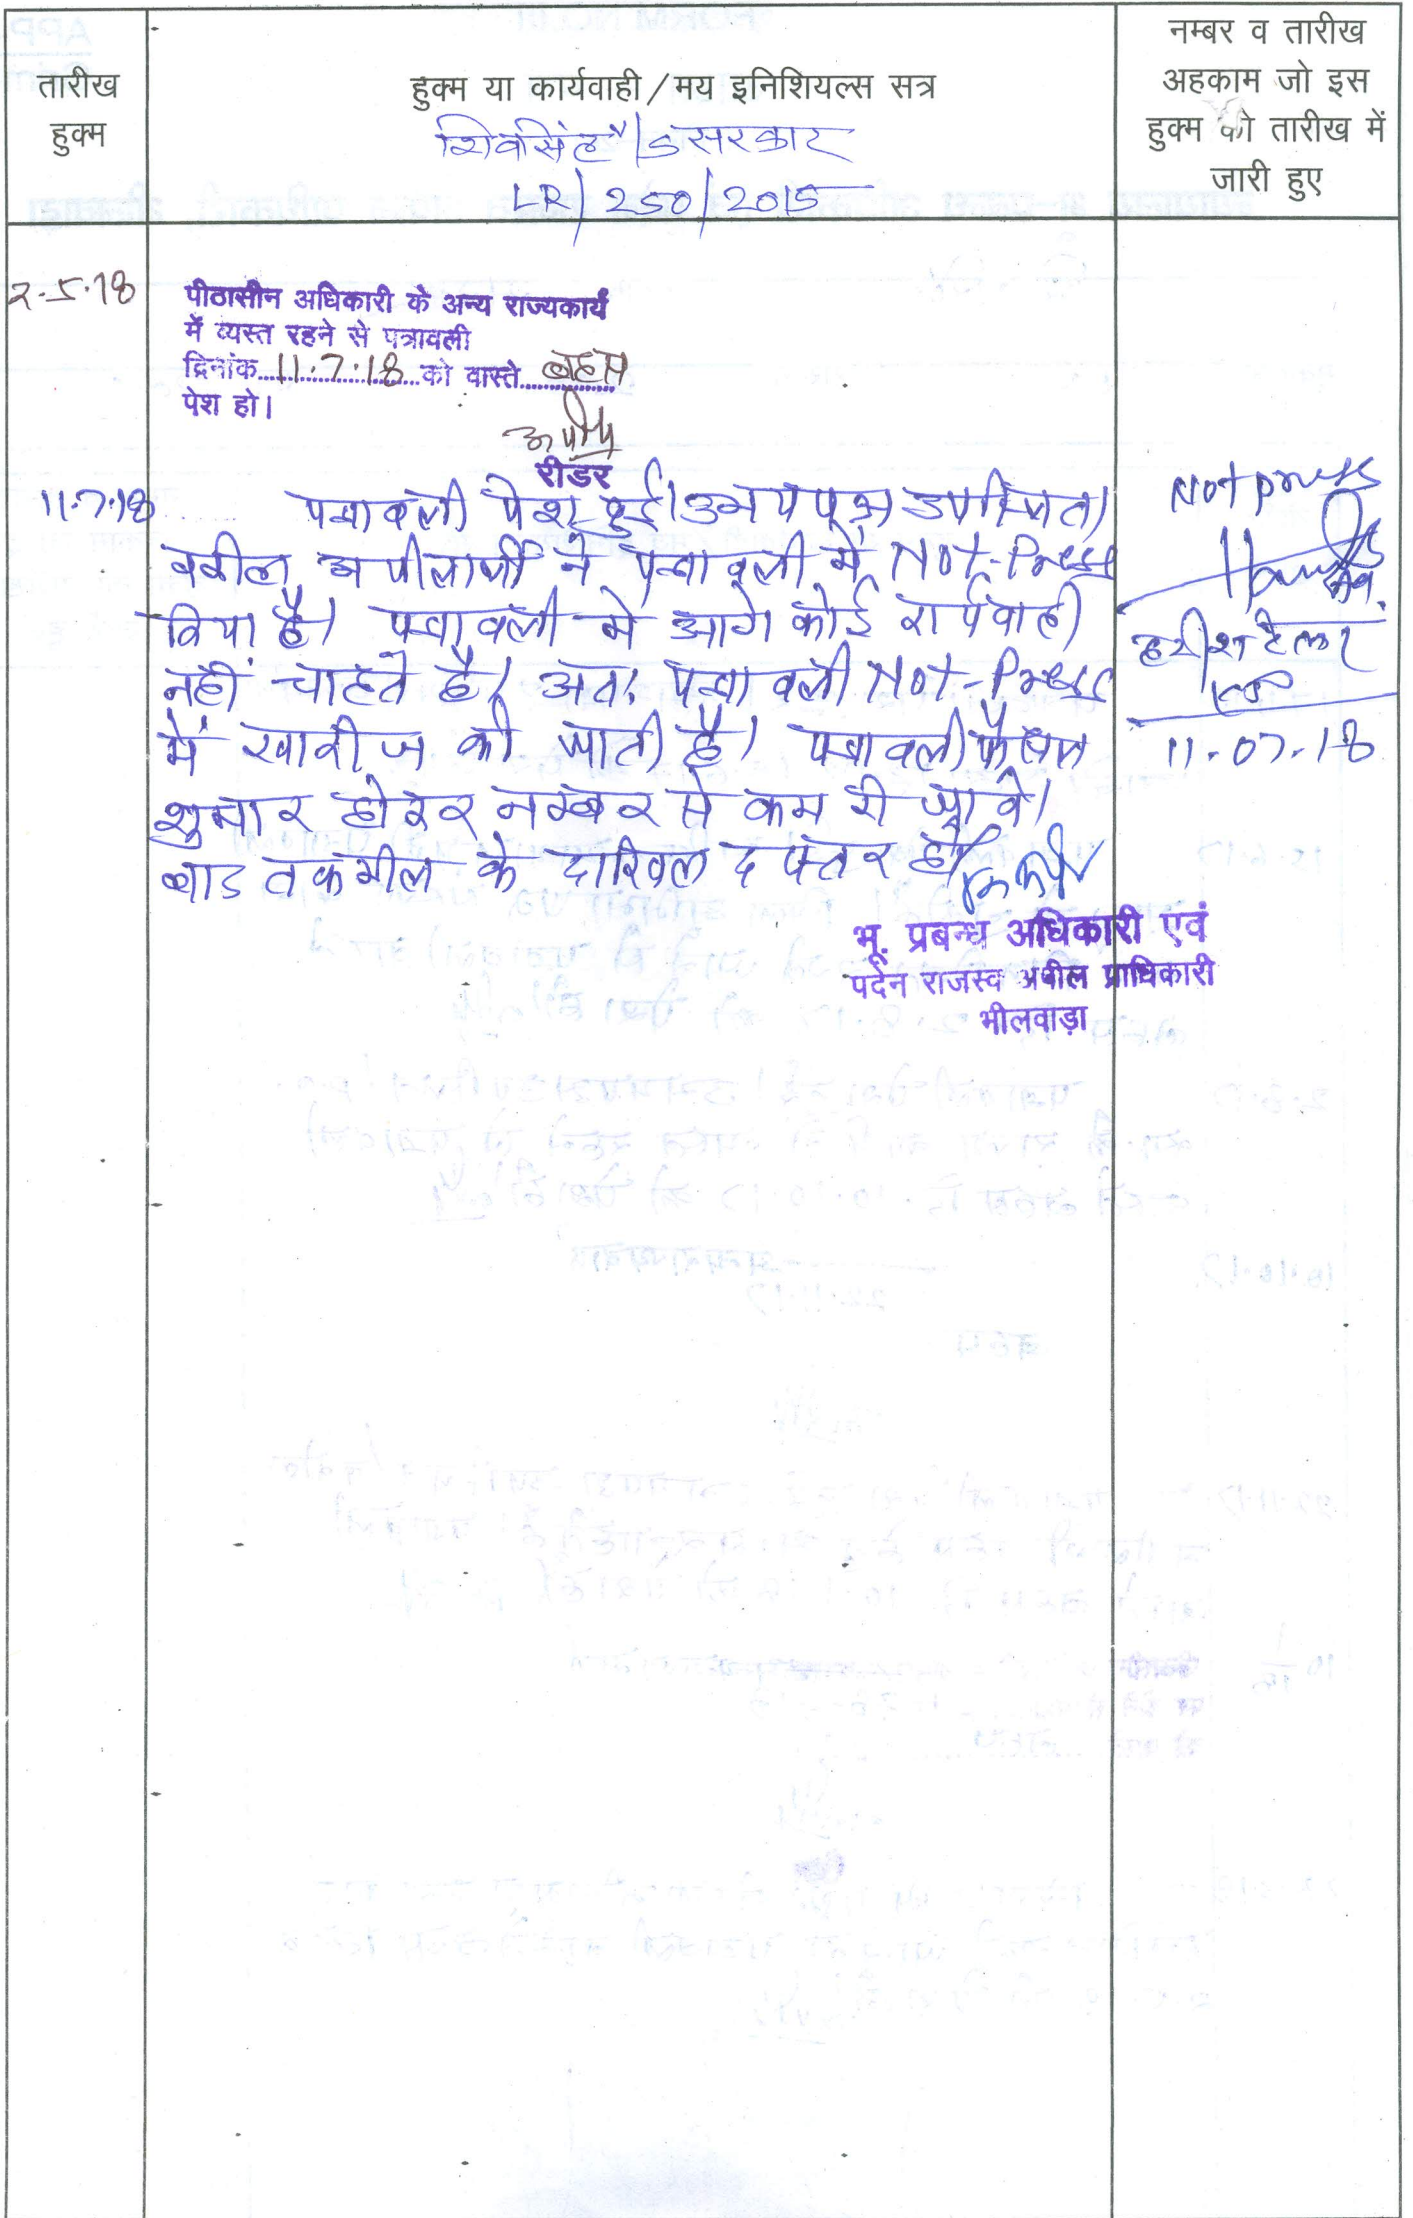 तारीख
हुक्म
हुक्म या कार्यवाही/मय इनिशियल्स सत्र
शिवसिंह / सरकार
LR/250/2015
नम्बर व तारीख
अहकाम जो इस
हुक्म की तारीख में
जारी हुए
2.5.18
पीठासीन अधिकारी के अन्य राज्यकार्य
में व्यस्त रहने से पत्रावली
दिनांक 11.7.18 को वास्ते बहस
पेश हो।
रीडर
11.7.18
पत्रावली पेश हुई। उभयपक्ष उपस्थित।
वकील अपीलार्थी ने पत्रावली में Not-Press
किया है। पत्रावली में आगे कोई कार्यवाही
नहीं चाहते है। अतः पत्रावली Not-Press
में खारीज की जाती है। पत्रावली फैसल
शुमार होकर नम्बर से कम की जावे।
बाद तकमील के दाखिल दफ्तर हो।
भू. प्रबन्ध अधिकारी एवं
पदेन राजस्व अपील प्राधिकारी
भीलवाड़ा
Not press
हरीश टेलर
11-07-18